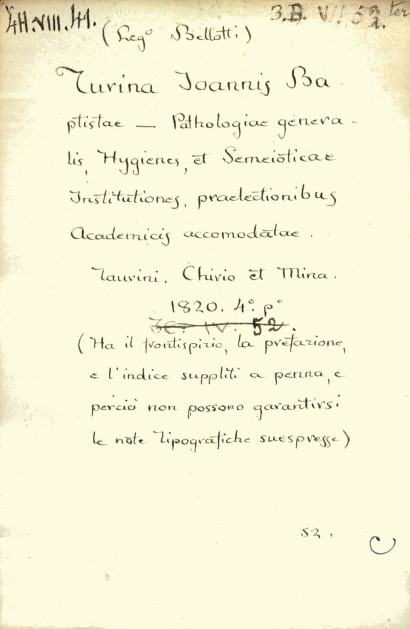 4H.VIII.41.
3.B. VII 52 ter
(Legº Bellotti)
Turina Joannis Ba
ptistae — Pathologiae genera-
lis, Hygienes, et Semeioticae
Institutiones, praelectionibus
Academicis accomodatae.
Taurini. Chirio et Mina.
1820. 4º. pº
IV. 52.
(Ha il frontispizio, la prefazione,
e l'indice suppliti a penna, e
perciò non possono garantirsi
le note tipografiche suespresse)
52.